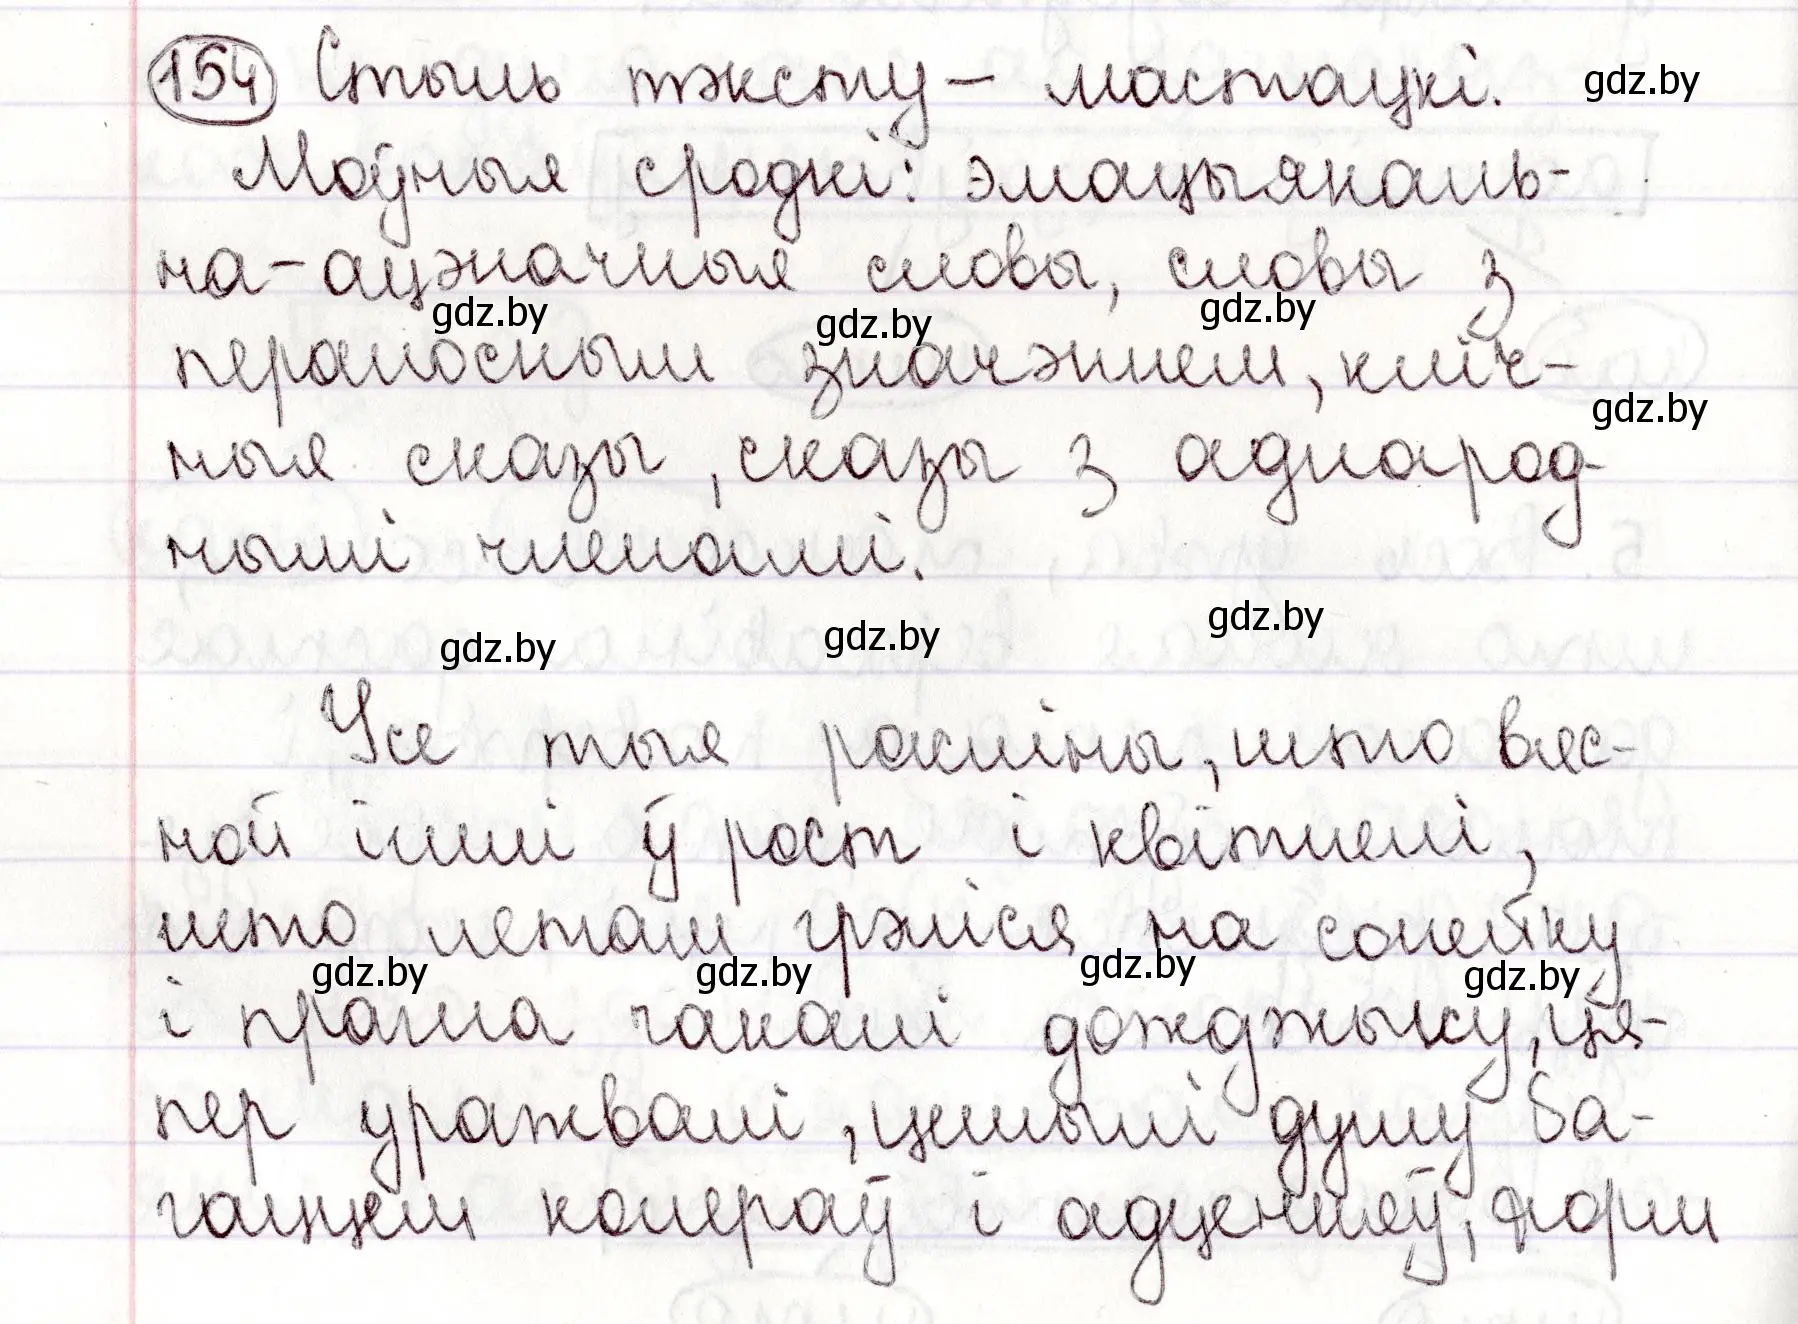 154 Стыль тэксту – мастацкі. gdz.by
Моўныя сродкі: эмацыяналь-
на-ацэначныя словы, словы з
gdz.by gdz.by gdz.by
пераносным значэннем, кліч-
gdz.by
ныя сказы, сказы з аднарод-
нымі членамі.
gdz.by gdz.by gdz.by
Усе тыя расліны, што вяс-
ной ішлі ў рост і квітнелі,
што летам грэліся на сонейку
gdz.by gdz.by gdz.by gdz.by
і прагна чакалі дожджыку, ця-
пер уражвалі, цешылі душу ба-
гаццем колераў і адценняў, форм